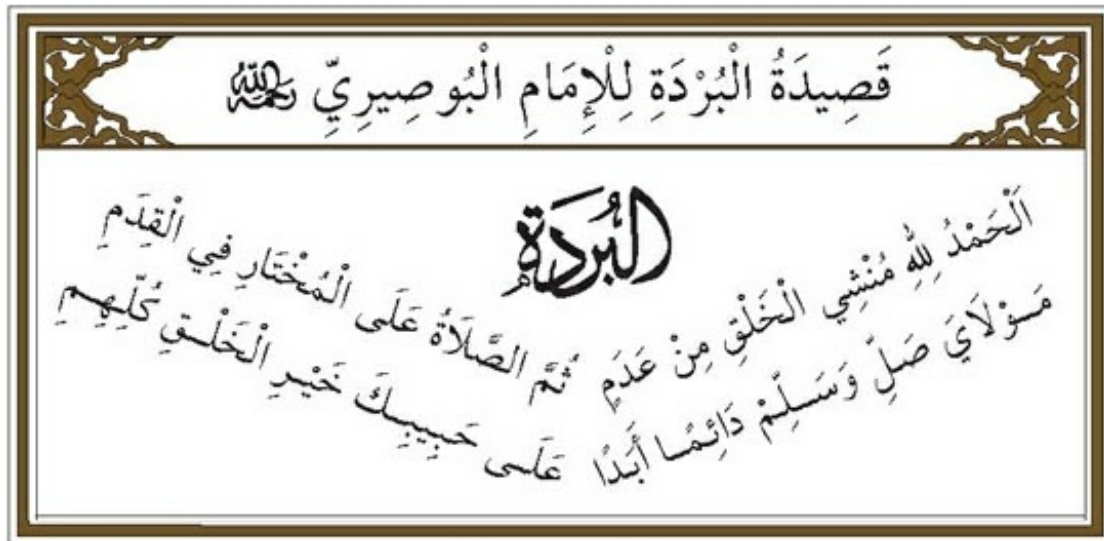 قَصِيدَةُ الْبُرْدَةِ لِلْإِمَامِ الْبُوصِيرِيِّ رحمه الله
الْبُرْدَةُ
اَلْحَمْدُ لِلّٰهِ مُنْشِي الْخَلْقِ مِنْ عَدَمٍ ثُمَّ الصَّلَاةُ عَلَى الْمُخْتَارِ فِي الْقِدَمِ
مَوْلَايَ صَلِّ وَسَلِّمْ دَائِمًا أَبَدًا عَلَى حَبِيبِكَ خَيْرِ الْخَلْقِ كُلِّهِمِ